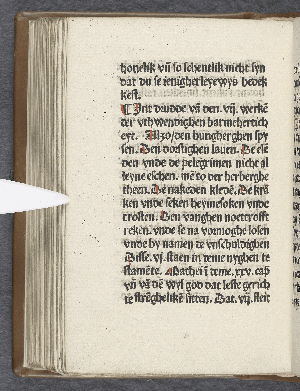 honelik vn̄ so schentlik nicht syn
dat du se ienigherleyewys bedek
kest.
¶ Int drudde vā den .vij. werkē
der vthwendighen barmehertich
eyt. Alzo/den hungherghen spy
sen. Den dorstighen lauen. De elē
den vnde de pelegrimen nicht al
leyne eschen. mē to der herberghe
theen. De nakeden kledē. De krā
ken vnde seken heymesoken vnde
trosten. Den vanghen noettrofft
reken. vnde se na vormoghe losen
vnde by namen te vnschuldighen
Disse .vj. staen in deme nyghen te
stamēte. Mathei ī deme .xxv. cap̄
vn̄ vā dē wyl god dat leste gerich
te strēgheliken sitten. Dat .vij. steit